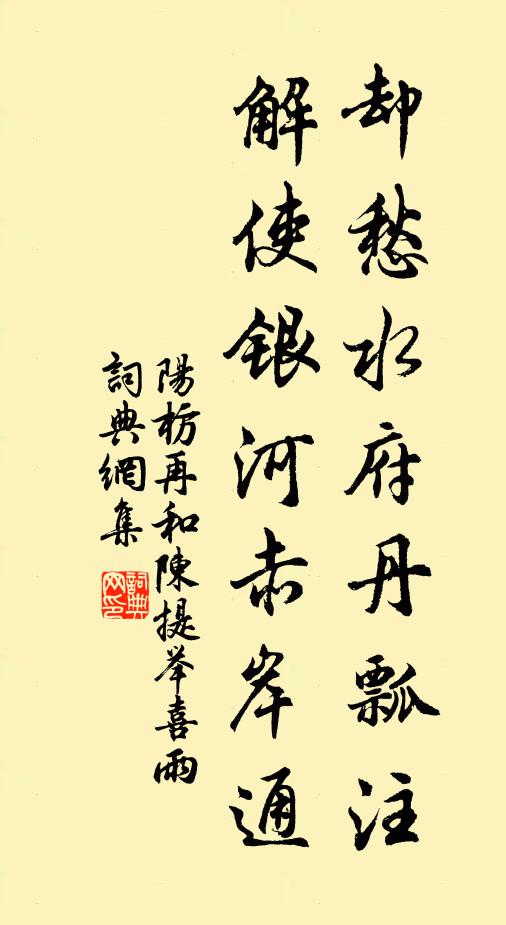 却愁水府丹瓢注
解使銀河赤岸通
陽枋再和陳提举喜雨
詞典網集
詞典
网印